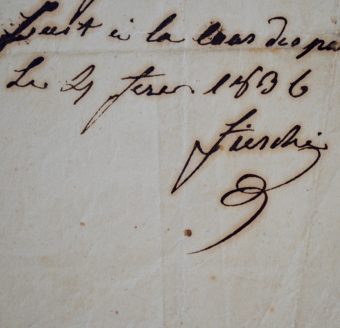 Fait à la Cour des pa
Le 4 fevrer 1836
Fieschi